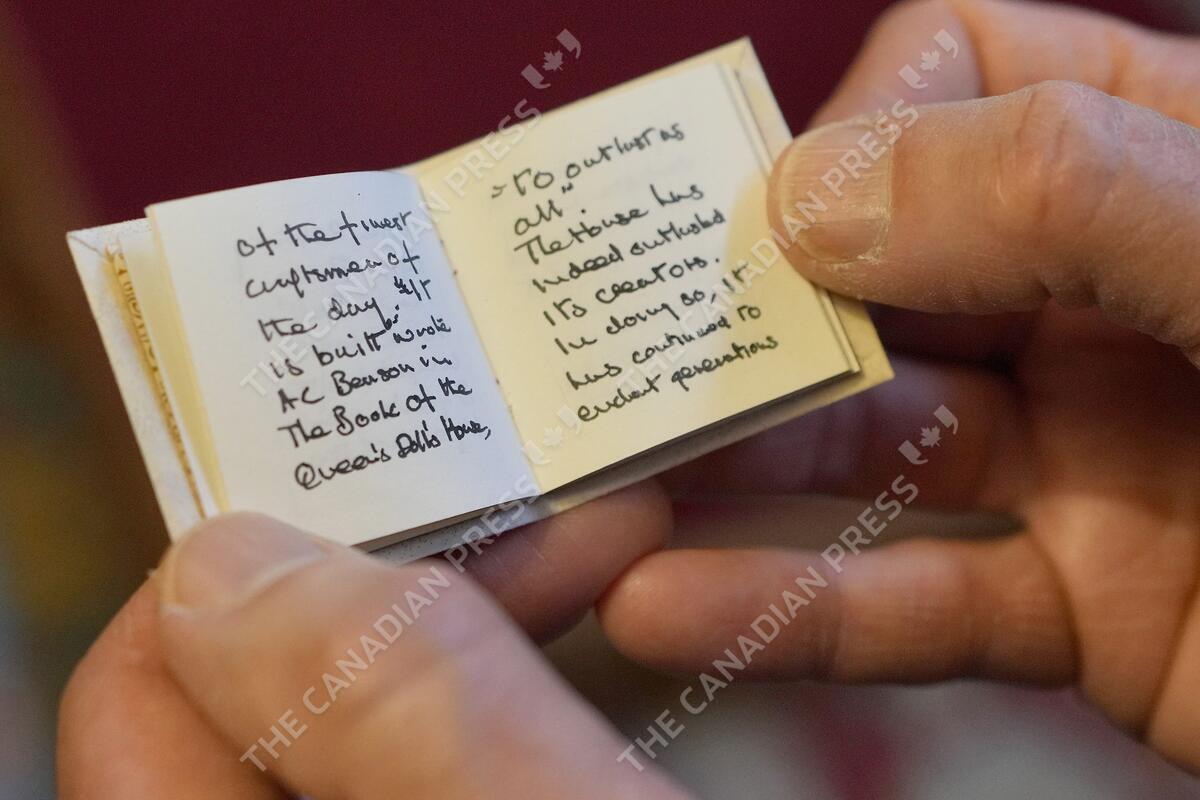 of the finest
craftsmen of
the day. "It
is built" wrote
AC Benson in
The Book of the
Queen's Dolls House,
"To outlast us
all".
The House has
indeed outlasted
its creators.
In doing so, it
has continued to
enchant generations
THE CANADIAN PRESS
THE CANADIAN PRESS
THE CANADIAN PRESS
THE CANADIAN PRESS
THE CANADIAN PRESS